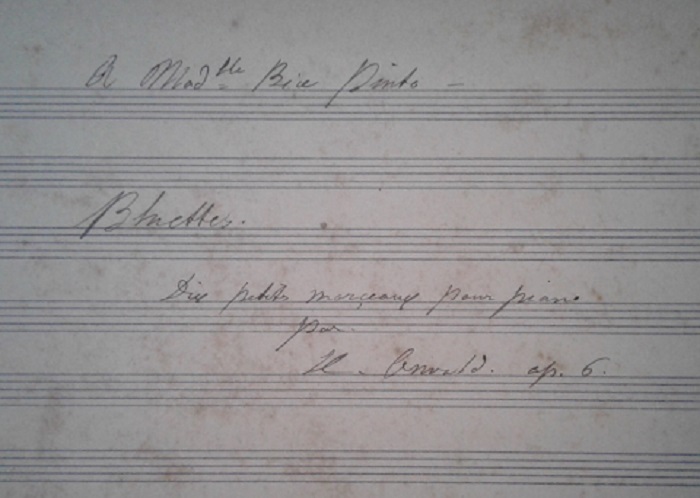 A Mad^lle Bice Pinto –
Bluettes.
Dix petits morçeaux pour piano
par
H. Oswald. op. 6.